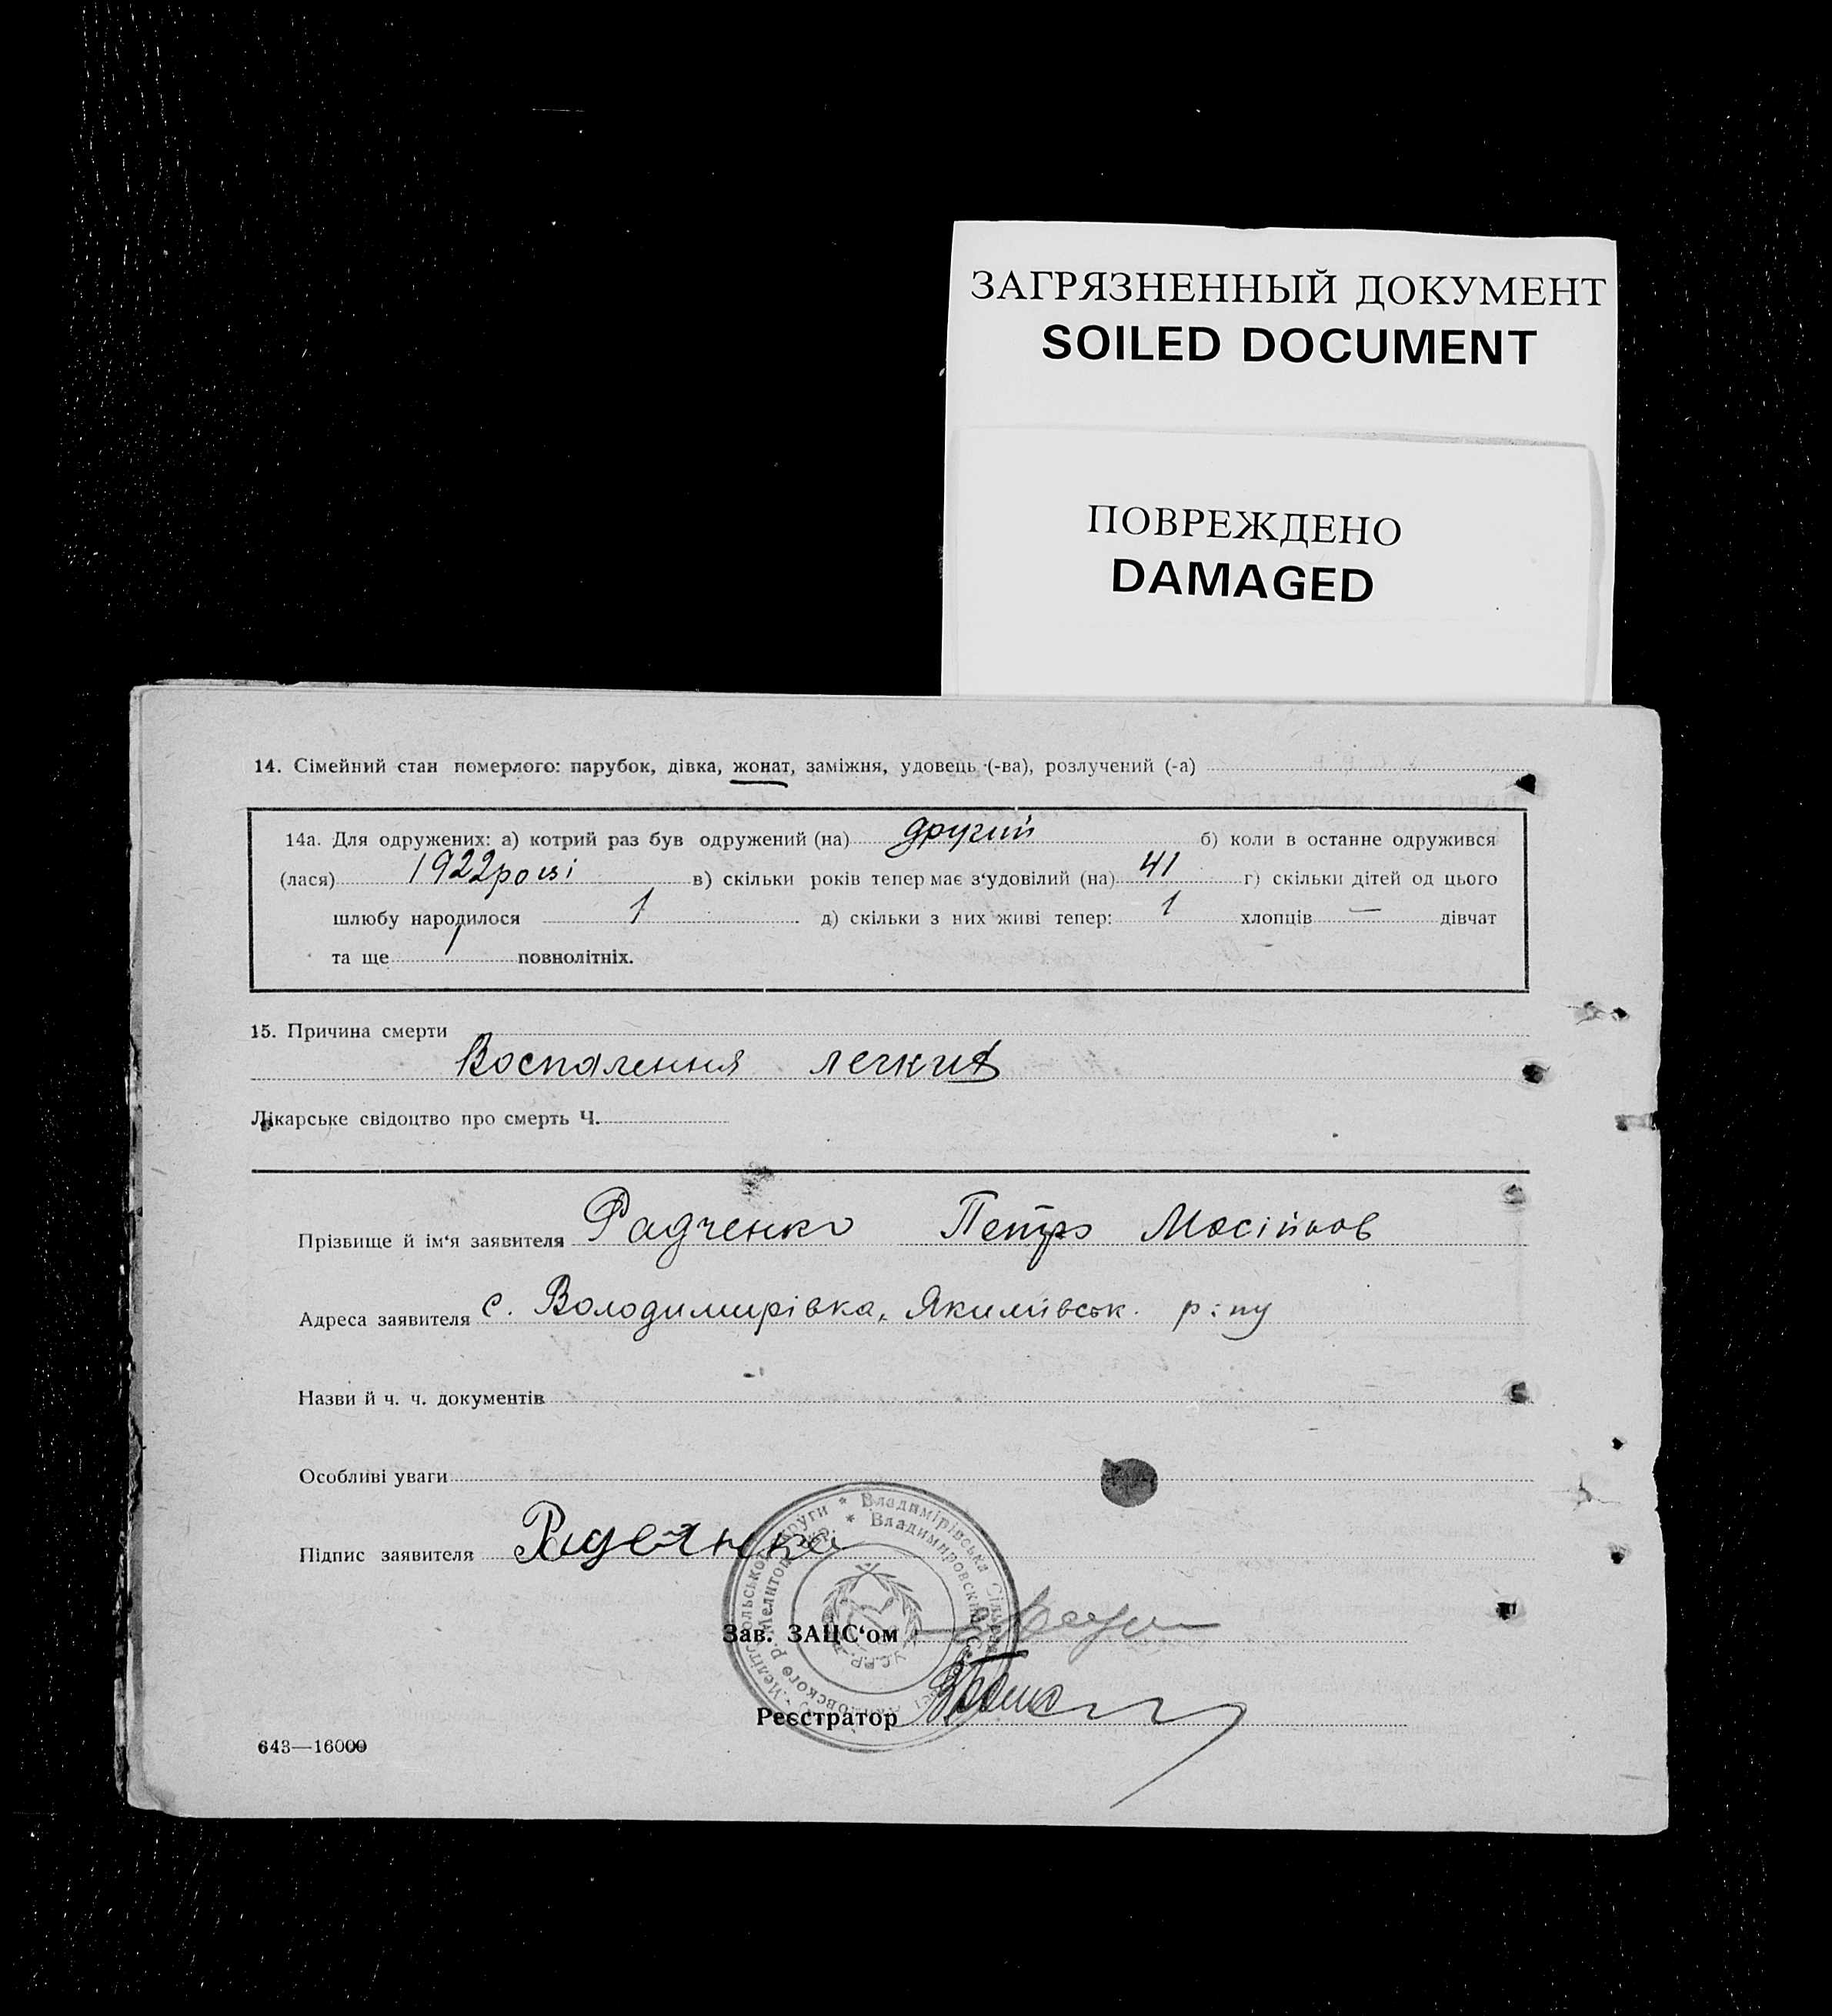 ЗАГРЯЗНЕННЫЙ ДОКУМЕНТ
SOILED DOCUMENT
ПОВРЕЖДЕНО
DAMAGED
14. Сімейний стан померлого: парубок, дівка, жонат, заміжня, удовець (-ва), розлучений (-а)
14а. Для одружених: а) котрий раз був одружений (на) другий б) коли в останнє одружився
(лася) 1922 році в) скільки років тепер має з‘удовілий (на) 41 г) скільки дітей од цього
шлюбу народилося 1 д) скільки з них живі тепер: 1 хлопців — дівчат
та ще 1 повнолітніх.
15. Причина смерти
Воспалення легких
Лікарське свідоцтво про смерть Ч.
Прізвище й ім‘я заявителя Радченко Петро
Адреса заявителя с. Володимирівка, Якимівськ. р:ну
Назви й ч. ч. документів
Особливі уваги
Підпис заявителя Радченко
Зав. ЗАЦС‘ом
Реєстратор
643—16000